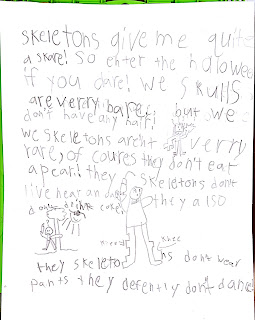 skeletons give me quite
a skare! so enter the haloween
if you dare! we skulls
are verry bare! but we
don't have any hair!
we skeletons arent verry
rare, of coures they don't eat
a pear! they skeletons don't
live near an
don't drink coke! they also
they skeletons don't wear
pants they defently don't dance